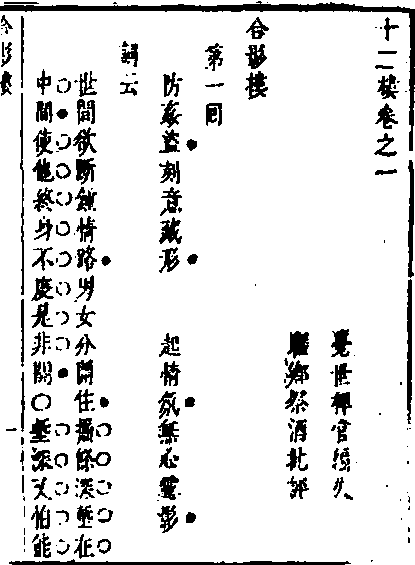 十二樓卷之一
覺世稗官編次
睡鄉祭酒批評
合影樓
第一回
防姦盜刻意藏形 起情氛無心露影
詞云
世間欲斷鍾情路男女分開住掘條深塹在
中間使他終身不度是非關○塹深又怕能
合影樓
一